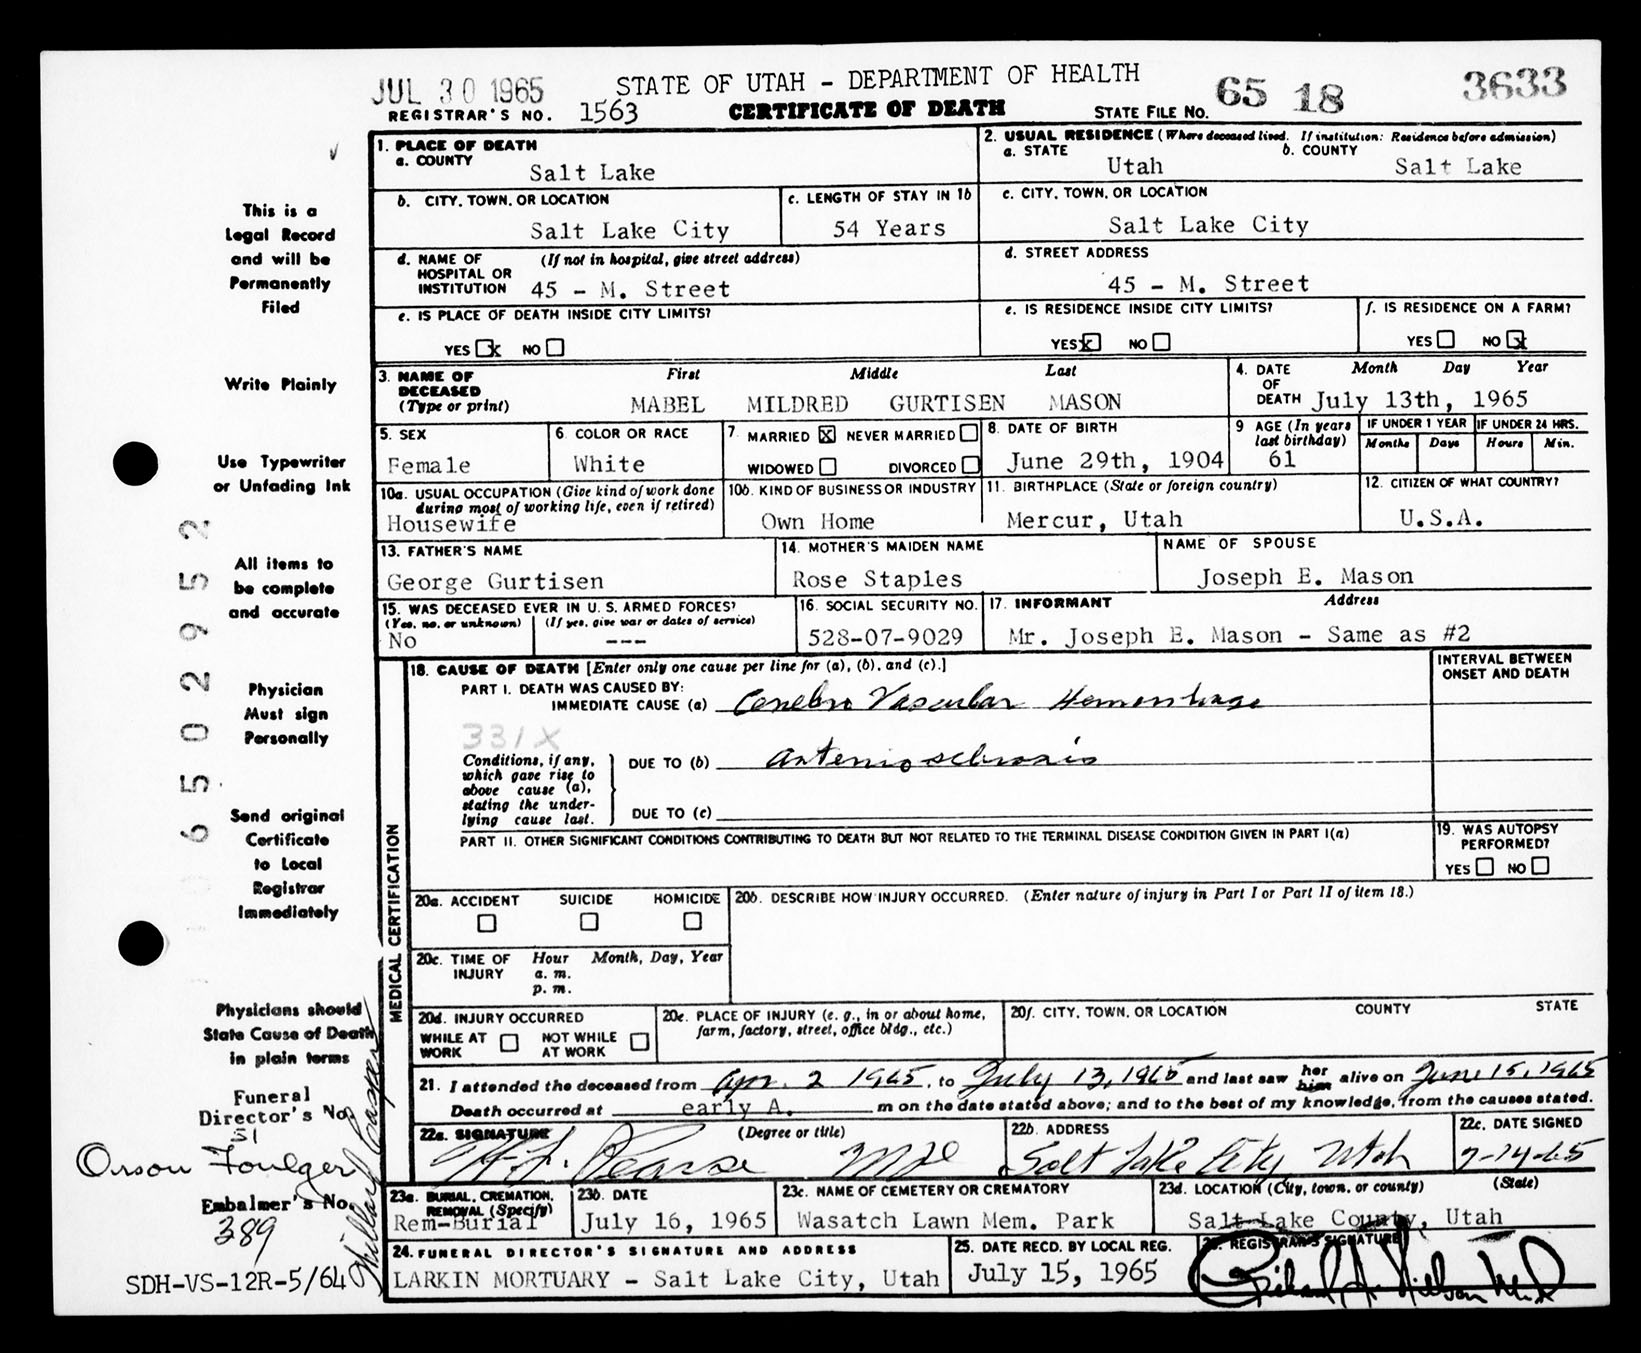 JUL 30 1965
STATE OF UTAH - DEPARTMENT OF HEALTH
65 18
3633
REGISTRAR'S NO. 1563
CERTIFICATE OF DEATH
STATE FILE NO.
This is a
Legal Record
and will be
Permanently
Filed
Write Plainly
Use Typewriter
or Unfading Ink
All items to
be complete
and accurate
Physician
Must sign
Personally
Send original
Certificate
to Local
Registrar
Immediately
Physicians should
State Cause of Death
in plain terms
Funeral
Director's No.
51
Orson Foulger
Embalmer's No.
389
SDH-VS-12R-5/64
65029 52
1. PLACE OF DEATH
a. COUNTY
Salt Lake
2. USUAL RESIDENCE (Where deceased lived. If institution: Residence before admission)
a. STATE Utah b. COUNTY Salt Lake
b. CITY, TOWN, OR LOCATION
Salt Lake City
c. LENGTH OF STAY IN 1b
54 Years
c. CITY, TOWN, OR LOCATION
Salt Lake City
d. NAME OF HOSPITAL OR INSTITUTION (If not in hospital, give street address)
45 - M. Street
d. STREET ADDRESS
45 - M. Street
e. IS PLACE OF DEATH INSIDE CITY LIMITS?
YES x NO
e. IS RESIDENCE INSIDE CITY LIMITS?
YES x NO
f. IS RESIDENCE ON A FARM?
YES NO x
3. NAME OF DECEASED (Type or print)
First Middle Last
MABEL MILDRED GURTISEN MASON
4. DATE OF DEATH
Month Day Year
July 13th, 1965
5. SEX
Female
6. COLOR OR RACE
White
7. MARRIED x NEVER MARRIED
WIDOWED DIVORCED
8. DATE OF BIRTH
June 29th, 1904
9 AGE (In years last birthday)
61
IF UNDER 1 YEAR
Months Days
IF UNDER 24 HRS.
Hours Min.
10a. USUAL OCCUPATION (Give kind of work done during most of working life, even if retired)
Housewife
10b. KIND OF BUSINESS OR INDUSTRY
Own Home
11. BIRTHPLACE (State or foreign country)
Mercur, Utah
12. CITIZEN OF WHAT COUNTRY?
U.S.A.
13. FATHER'S NAME
George Gurtisen
14. MOTHER'S MAIDEN NAME
Rose Staples
NAME OF SPOUSE
Joseph E. Mason
15. WAS DECEASED EVER IN U. S. ARMED FORCES?
(Yes, no, or unknown) (If yes, give war or dates of service)
No ---
16. SOCIAL SECURITY NO.
528-07-9029
17. INFORMANT Address
Mr. Joseph E. Mason - Same as #2
MEDICAL CERTIFICATION
18. CAUSE OF DEATH [Enter only one cause per line for (a), (b), and (c).]
INTERVAL BETWEEN
ONSET AND DEATH
PART I. DEATH WAS CAUSED BY:
IMMEDIATE CAUSE (a) Cerebro Vascular Hemorrhage
331X
Conditions, if any,
which gave rise to
above cause (a),
stating the under-
lying cause last.
DUE TO (b) arteriosclerosis
DUE TO (c)
PART II. OTHER SIGNIFICANT CONDITIONS CONTRIBUTING TO DEATH BUT NOT RELATED TO THE TERMINAL DISEASE CONDITION GIVEN IN PART I(a)
19. WAS AUTOPSY
PERFORMED?
YES NO
20a. ACCIDENT SUICIDE HOMICIDE
20b. DESCRIBE HOW INJURY OCCURRED. (Enter nature of injury in Part I or Part II of item 18.)
20c. TIME OF INJURY
Hour Month, Day, Year
a. m.
p. m.
20d. INJURY OCCURRED
WHILE AT WORK NOT WHILE AT WORK
20e. PLACE OF INJURY (e. g., in or about home, farm, factory, street, office bldg., etc.)
20f. CITY, TOWN, OR LOCATION COUNTY STATE
21. I attended the deceased from Apr. 2 1965, to July 13, 1965 and last saw her him alive on June 15, 1965
Death occurred at early A. m on the date stated above; and to the best of my knowledge, from the causes stated.
22a. SIGNATURE (Degree or title)
Pearse MD
22b. ADDRESS
Salt Lake City, Utah
22c. DATE SIGNED
7-14-65
23a. BURIAL, CREMATION, REMOVAL (Specify)
Rem-Burial
23b. DATE
July 16, 1965
23c. NAME OF CEMETERY OR CREMATORY
Wasatch Lawn Mem. Park
23d. LOCATION (City, town, or county) (State)
Salt Lake County, Utah
24. FUNERAL DIRECTOR'S SIGNATURE AND ADDRESS
LARKIN MORTUARY - Salt Lake City, Utah
25. DATE RECD. BY LOCAL REG.
July 15, 1965
26. REGISTRAR'S SIGNATURE